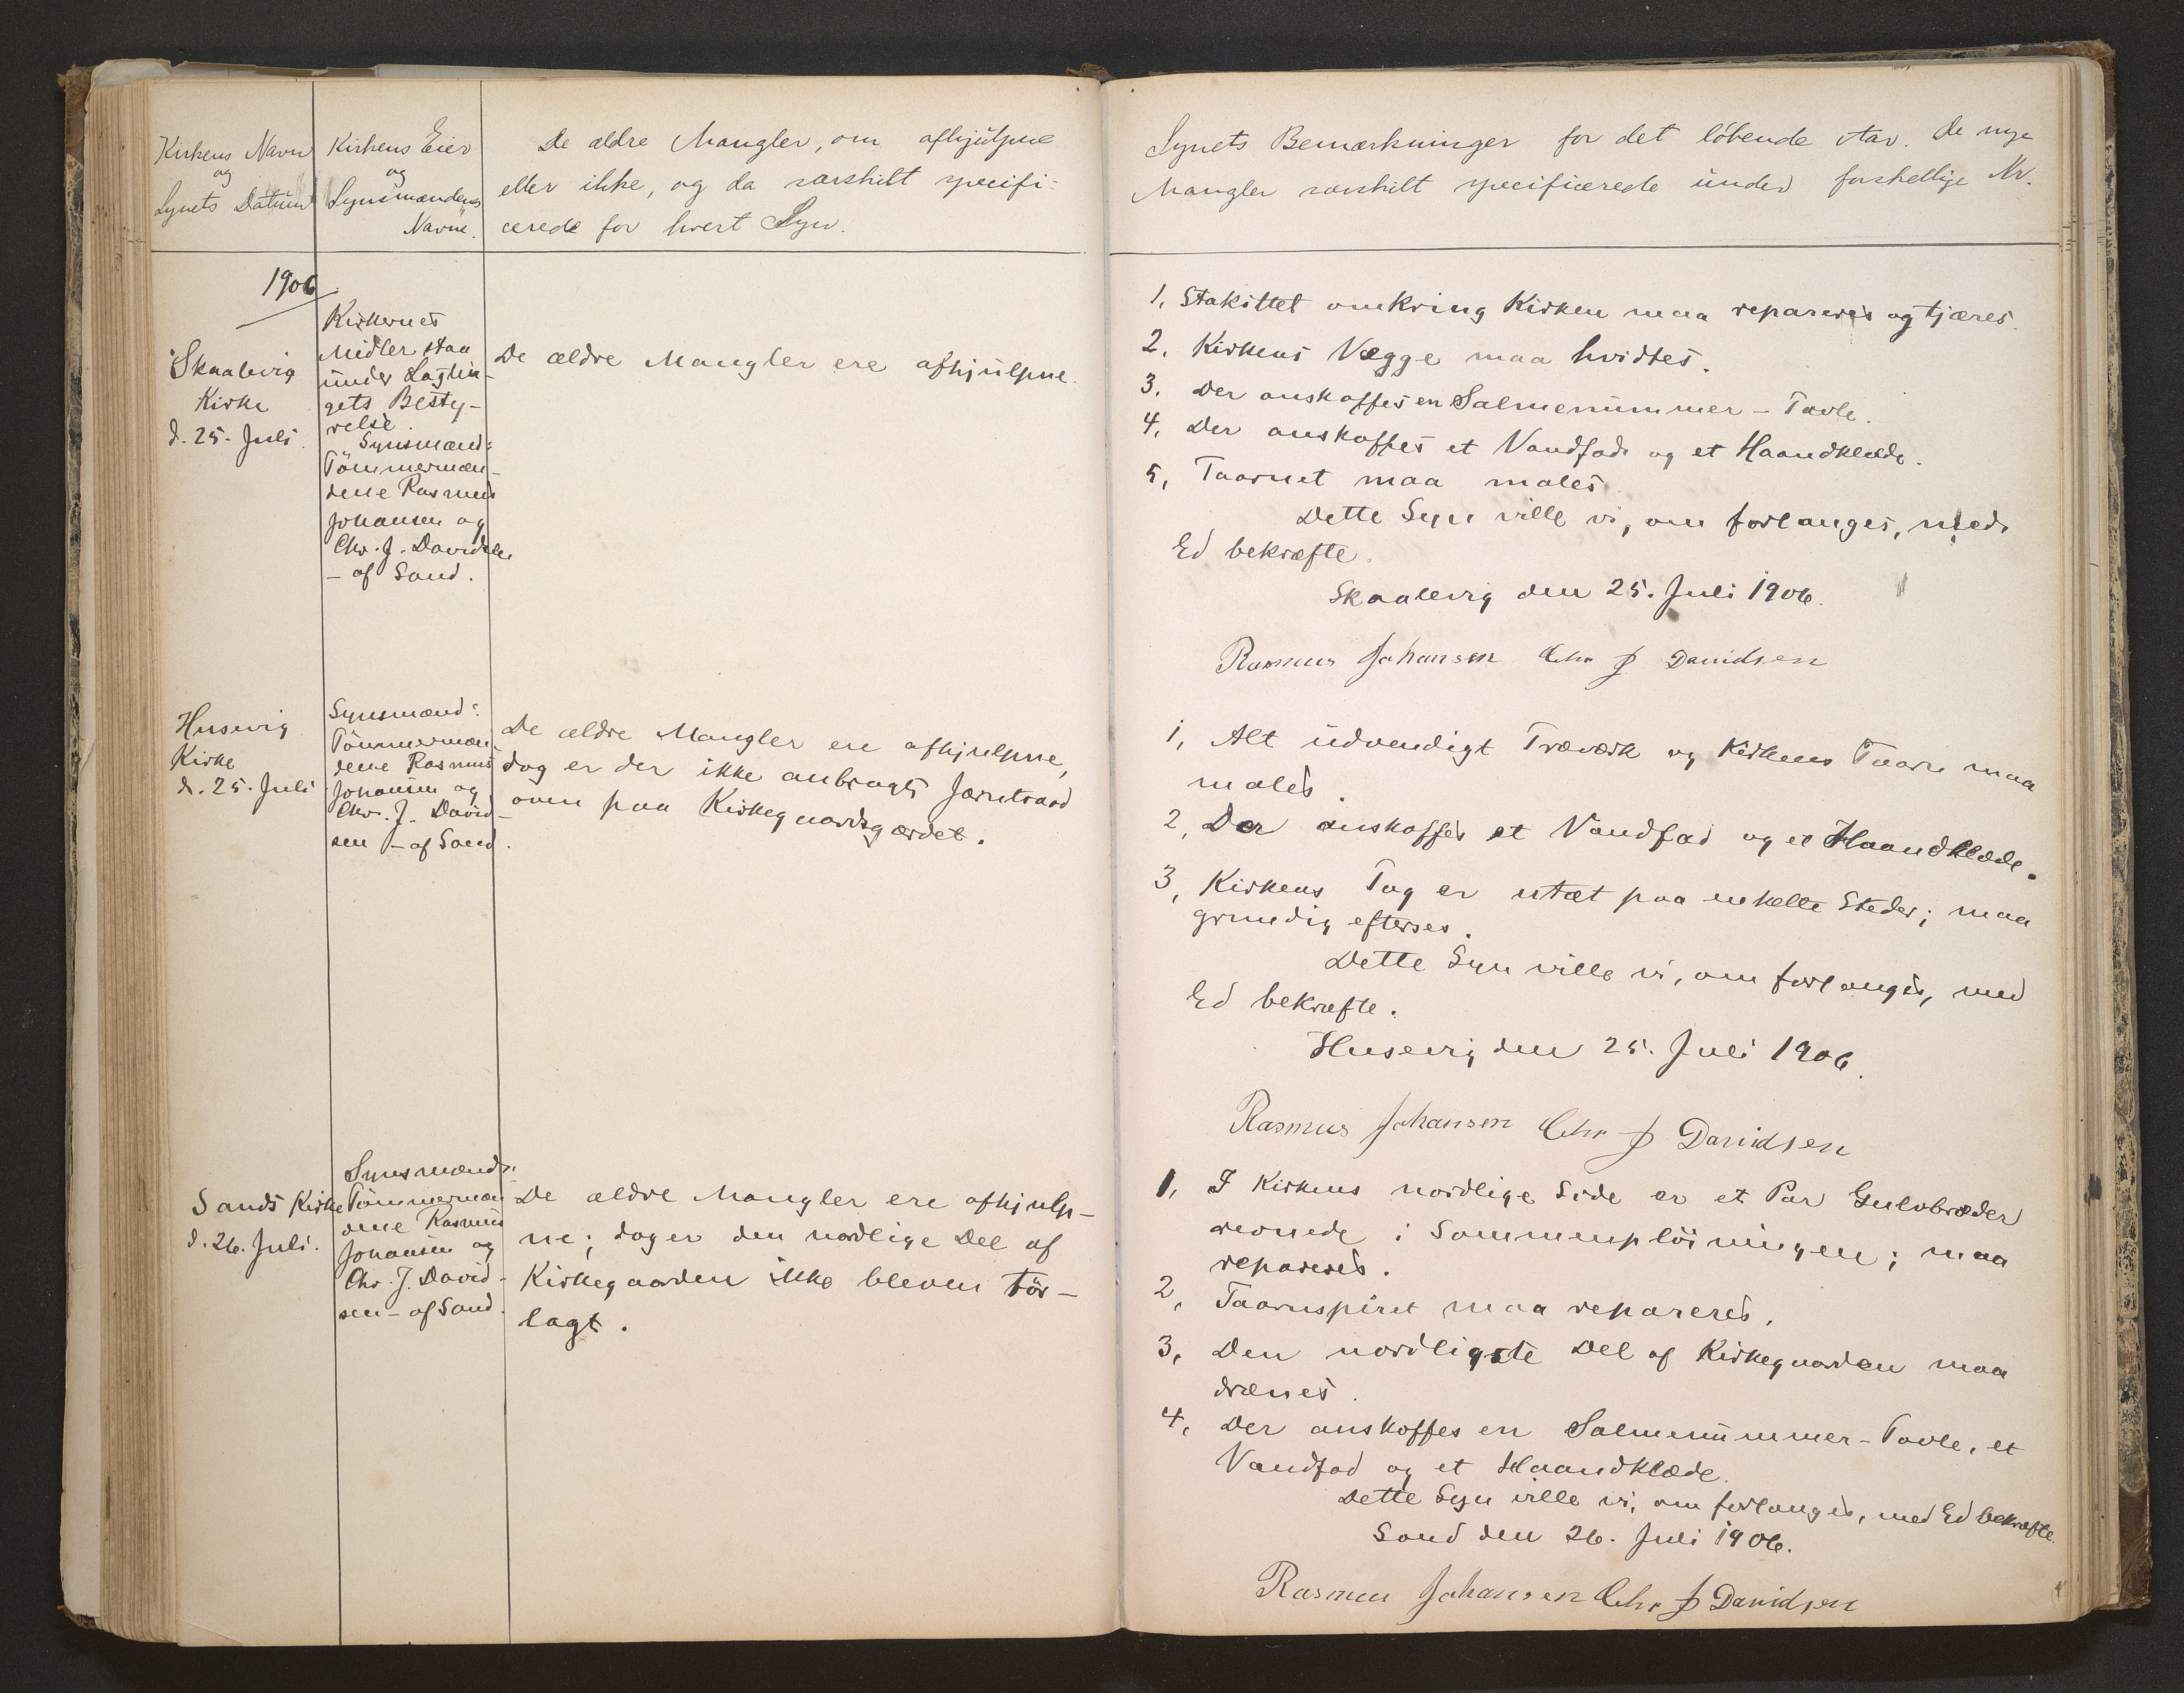 Kirkens Navn
og
Synets Datum
Kirkens Eier
og
Synsmændenes
Navne.
De ældre Mangler, om afhjulpne
eller ikke, og da særskilt specifi-
cerede for hvert Syn.
1906
Skaalevig
Kirke
d. 25. Juli.
Kirkernes
Midler staa
under Lagtin-
gets Besty-
relse.
Synsmænd:
Tömmermæn-
dene Rasmus
Johansen og
Chr. J. Davidsen
- af Sand.
De ældre Mangler ere afhjulpne.
Husevig
Kirke
d. 25. Juli
Synsmænd:
Tömmermæn-
dene Rasmus
Johansen og
Chr. J. David-
sen - af Sand.
De ældre Mangler ere afhjulpne,
dog er der ikke anbragt Jærntraad
oven paa Kirkegaardsgærdet.
Sands Kirke
d. 26. Juli.
Synsmænd:
Tömmermæn-
dene Rasmus
Johansen og
Chr. J. David-
sen - af Sand.
De ældre Mangler ere afhjulp-
ne; dog er den nordlige Del af
Kirkegaarden ikke bleven tör-
lagt.
Synets Bemærkninger for det löbende Aar. De nye
Mangler særskilt specificerede under forskellige Nr.
1, Stakittet omkring Kirken maa repareres og tjæres.
2. Kirkens Vægge maa hvidtes.
3. Der anskaffes en Salmenummer-Tavle.
4. Der anskaffes et Vandfad og et Haandklæde.
5, Taarnet maa males.
Dette Syn ville vi, om forlanges, med
Ed bekræfte.
Skaalevig den 25. Juli 1906.
Rasmus Johansen Chr J Davidsen
1, Alt udvendigt Træværk og Kirkens Taarn maa
males.
2, Der anskaffes et Vandfad og et Haandklæde.
3, Kirkens Tag er utæt paa enkelte Steder; maa
grundig efterses.
Dette Syn ville vi, om forlanges, med
Ed bekræfte.
Husevig den 25. Juli 1906.
Rasmus Johansen Chr J Davidsen
1, I Kirkens nordlige Side er et Par Gulvbræder
revnede i Sammenplöiningen; maa
repareres.
2, Taarnspiret maa repareres.
3, Den nordligste Del af Kirkegaarden maa
drænes.
4, Der anskaffes en Salmenummer-Tavle, et
Vandfad og et Haandklæde.
Dette Syn ville vi, om forlanges, med Ed bekræfte.
Sand den 26. Juli 1906.
Rasmus Johansen Chr J Davidsen